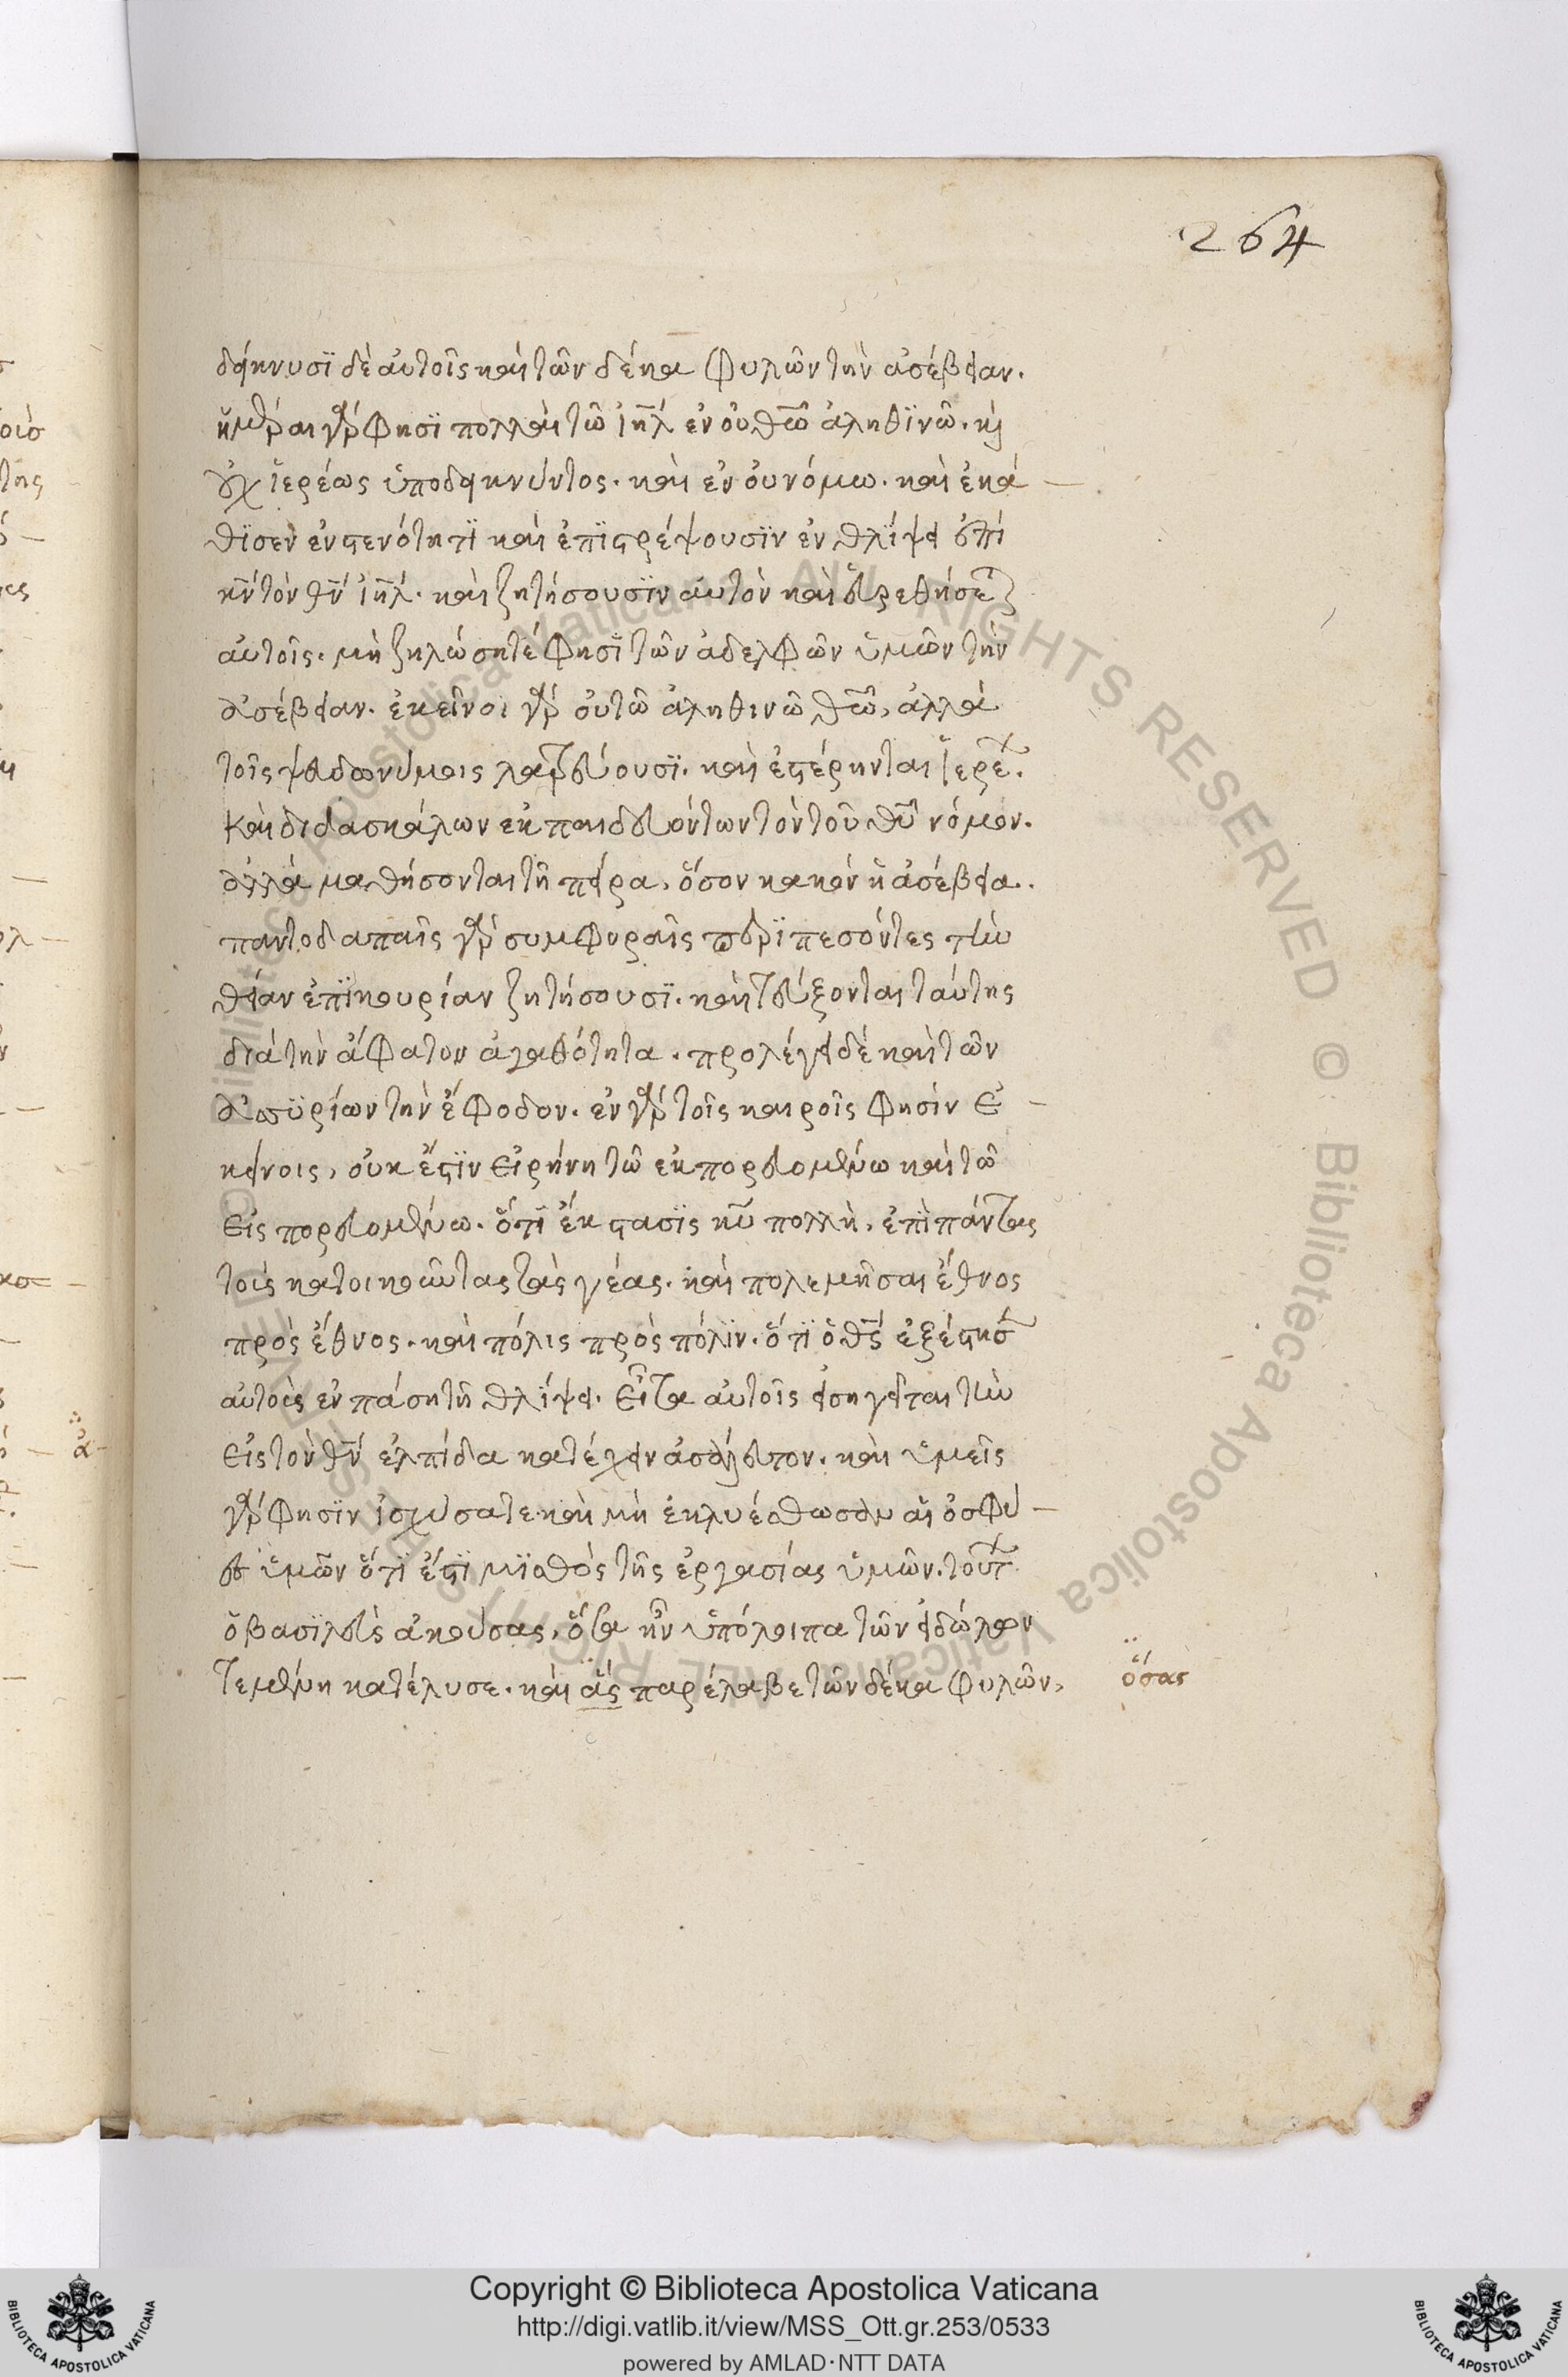 264
δείκνυσϊ δὲ ἀυτοῖς καὶ τῶν δέκα φυλῶν τὴν ἀσέβειαν.
ἡμέραι γὰρ φησϊ πολλαὶ τῶ ἰη̅λ ἐν οὐ θ̅ω̅ ἀληθϊνῶ. κὶ
οὐχ ἱερέως ὑποδεικνύντος. καὶ ἐν οὐ νόμω. καὶ ἐκά –
θϊσεν ἐν στενότητϊ καὶ ἐπϊστρέψουσϊν ἐν θλίψει ἐπὶ
κ̅ν̅ τὸν θ̅ν̅ ἰη̅λ. καὶ ζητήσουσϊν αὐτὸν καὶ εὑρεθήσεται
αὐτοῖς. μὴ ζηλώσητέ φησϊ τῶν ἀδελφῶν ὑμῶν τὴν
ἀσέβειαν. ἐκεῖνοι γὰρ οὐ τῶ ἀληθινῶ θ̅ω̅, ἀλλὰ
τοῖς ψευδωνύμοις λατρεύουσϊ. καὶ ἐστέρηνται ἱερέ.
Καὶ διδασκάλων ἐκπαιδευόντων τὸν τοῦ θ̅υ̅ νόμον.
ἀλλὰ μαθήσονται τῆ πείρα, ὅσον κακὸν ἡ ἀσέβεια.
παντοδαπαῖς γὰρ συμφοραῖς περϊπεσόντες τὴν
θείαν ἐπϊκουρίαν ζητήσουσϊ. καὶ τεύξονται ταύτης
διὰ τὴν ἄφατον ἀγαθότητα. προλέγει δὲ καὶ τῶν
ἀσσϋρίων τὴν ἔφοδον. ἐν γὰρ τοῖς καιροῖς φησὶν ἐ –
κείνοις, οὐκ ἔστϊν εἰρήνη τῶ ἐκπορευομένω καὶ τῶ
εἰς πορευομένω. ὅτϊ ἔκστασϊς κ̅υ̅ πολλὴ, ἐπὶ πάντας
τοὺς κατοικοῦντας τὰς γέας. καὶ πολεμῆσαι ἔθνος
πρὸς ἔθνος. καὶ πόλις πρὸς πόλϊν. ὅτϊ ὁ θ̅ς̅ ἐξέστησ
αὐτοὺς ἐν πάση τῆ θλίψει. εἶτα αὐτοῖς εἰσηγεῖται τὴν
εἰς τὸν θ̅ν̅ ἐλπίδα κατέχειν ἀσάλευτον. καὶ ὑμεῖς
γὰρ φησϊν ἰσχύσατε καὶ μὴ ἐκλυέσθωσαν αἱ ὀσφύ –
ες ὑμῶν ὅτϊ ἔστϊ μϊσθὸς τῆς ἐργασίας ὑμῶν. τουτ
ὁ βασϊλεὺς ἀκούσας, ὅσα ἦν ὑπόλοιπα τῶν εἰδώλων
τεμένη κατέλυσε. καὶ ἃς παρέλαβε τῶν δέκα φυλῶν,
ὅσας
Copyright © Biblioteca Apostolica Vaticana
http://digi.vatlib.it/view/MSS_Ott.gr.253/0533
powered by AMLAD·NTT DATA